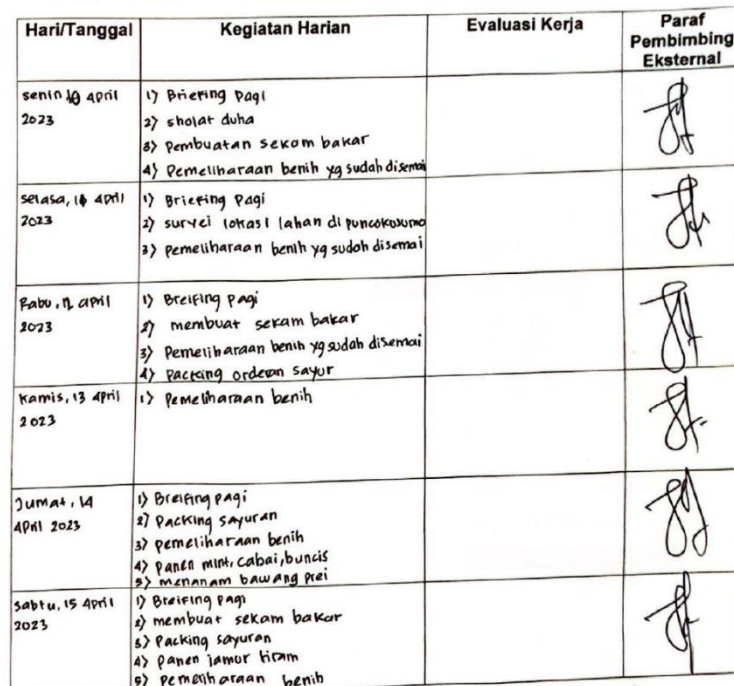 Hari/Tanggal
Kegiatan Harian
Evaluasi Kerja
Paraf
Pembimbing
Eksternal
senin 10 April
2023
1) Briefing Pagi
2) sholat duha
3) Pembuatan sekam bakar
4) Pemeliharaan benih yg sudah disemai
selasa, 11 April
2023
1) Briefing Pagi
2) survei lokasi lahan di puncokusumo
3) pemeliharaan benih yg sudah disemai
Rabu, 12 april
2023
1) Breifing pagi
2) membuat sekam bakar
3) Pemeliharaan benih yg sudah disemai
4) Packing orderan sayur
Kamis, 13 April
2023
1) Pemeliharaan benih
Jumat, 14
April 2023
1) Breifing pagi
2) Packing sayuran
3) pemeliharaan benih
4) panen mint, cabai, buncis
5) menanam bawang prei
Sabtu, 15 April
2023
1) Breifing pagi
2) membuat sekam bakar
3) Packing sayuran
4) panen jamur tiram
5) Pemeliharaan benih